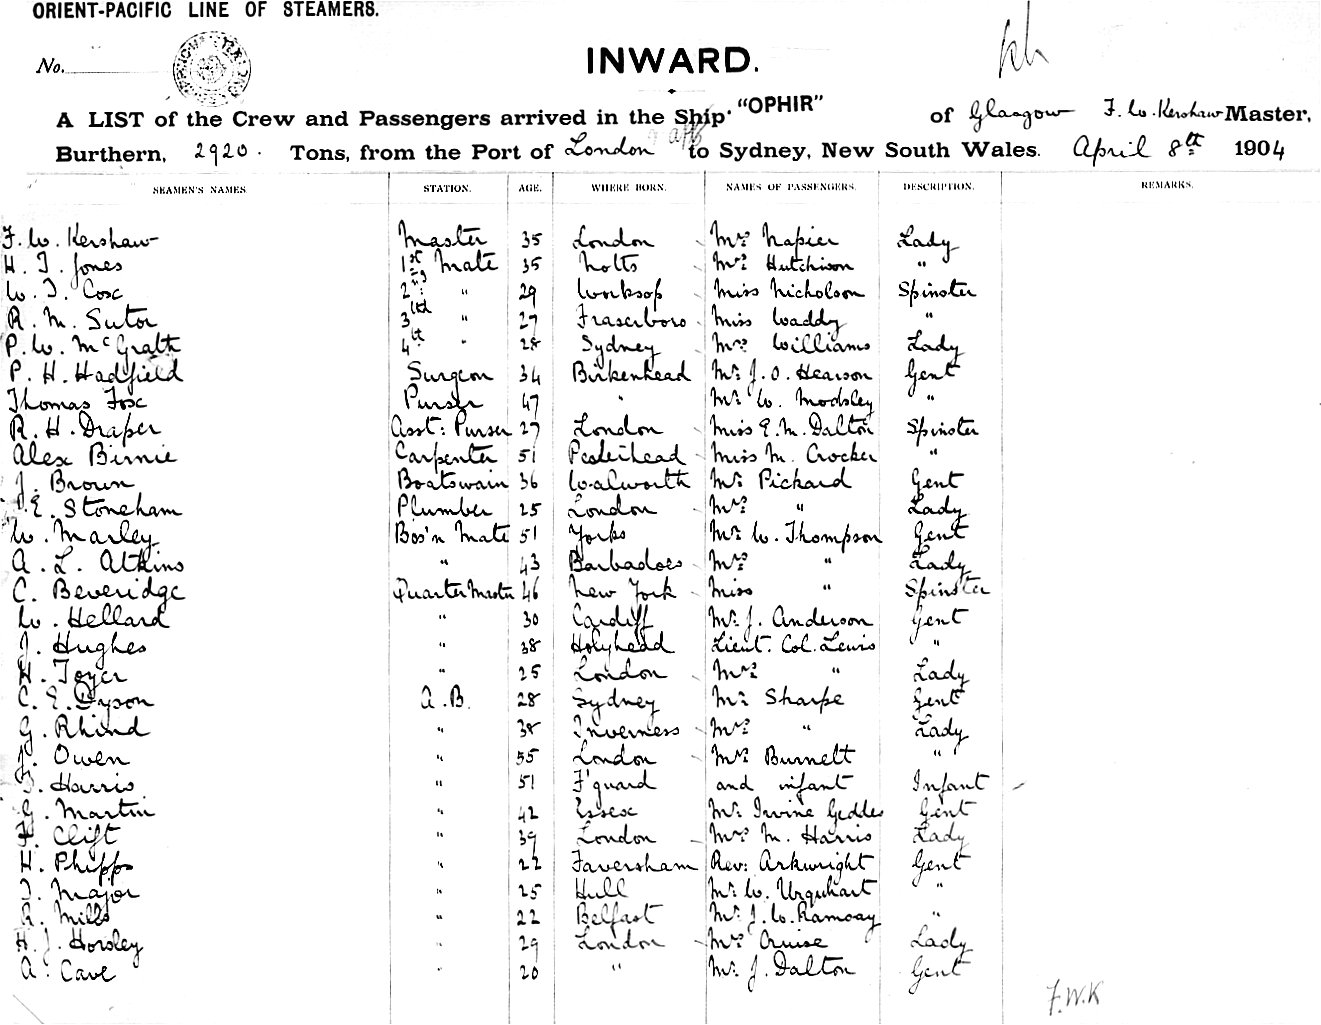 ORIENT-PACIFIC LINE OF STEAMERS.
No.
INWARD.
A LIST of the Crew and Passengers arrived in the Ship "OPHIR" of Glasgow F. W. Kershaw Master,
Burthern, 2920. Tons, from the Port of London to Sydney, New South Wales. April 8th 1904
SEAMEN'S NAMES. STATION. AGE. WHERE BORN. NAMES OF PASSENGERS. DESCRIPTION. REMARKS.
F. W. Kershaw Master 35 London Mrs Napier Lady
H. T. Jones 1st Mate 35 Notts Mrs Hutchison "
W. T. Cox 2nd " 29 Worksop Miss Nicholson Spinster
R. M. Sutor 3rd " 27 Fraserboro Miss Waddy "
P. W. McGrath 4th " 28 Sydney Mrs Williams Lady
P. H. Hadfield Surgeon 34 Birkenhead Mr J. O. Hearson Gent
Thomas Fox Purser 47 " Mr W. Modsley "
R. H. Draper Asst: Purser 27 London Miss E. M. Dalton Spinster
Alex Birnie Carpenter 51 Peterhead Miss M. Crocker "
J. Brown Boatswain 36 Walworth Mr Pickard Gent
E. Stoneham Plumber 25 London Mrs " Lady
W. Marley Bos'n Mate 51 Yorks Mr W. Thompson Gent
A. L. Atkins " 43 Barbadoes Mrs " Lady
C. Beveridge Quarter Master 46 New York Miss " Spinster
W. Hellard " 30 Cardiff Mr J. Anderson Gent
J. Hughes " 38 Holyhead Lieut. Col. Lewis "
H. Toyer " 25 London Mrs " Lady
C. E. Dyson A.B. 28 Sydney Mr Sharpe Gent
G. Rhind " 38 Inverness Mrs " Lady
J. Owen " 55 London Mrs Burnett "
Harris " 51 F'guard and infant Infant
G. Martin " 42 Essex Mr Irvine Geddes Gent
H. Clift " 39 London Mrs M. Harris Lady
H. Phipps " 22 Faversham Rev: Arkwright Gent
T. Major " 25 Hull Mr W. Urquhart "
R. Mills " 22 Belfast Mr J. W. Ramsay "
H. J. Horsley " 29 London Mrs Cruise Lady
A. Cave " 20 " Mr J. Dalton Gent
F.W.K